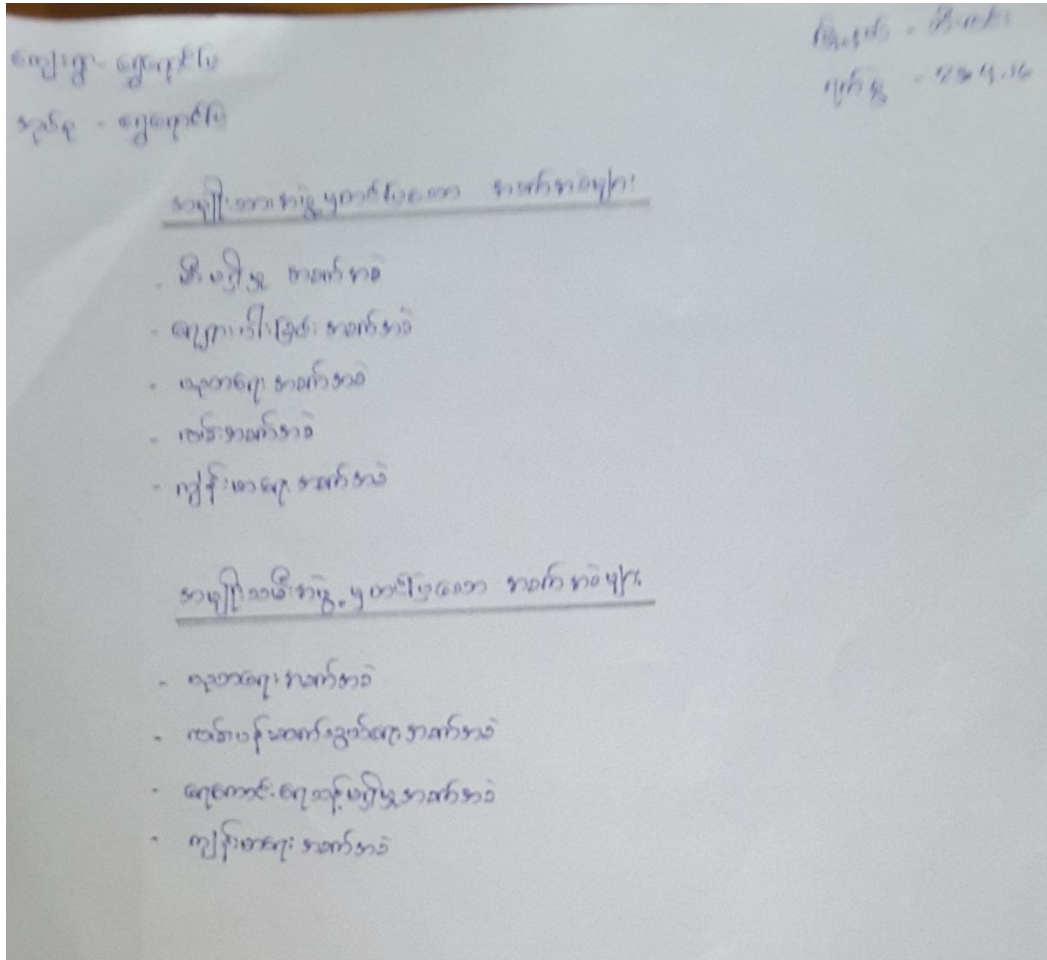 ကျေးရွာ - ရွှေရောင်ပြ
အုပ်စု - ရွှေရောင်ပြ
မြို့နယ် -
ရက်စွဲ - 25.4.16
အမျိုးသားအဖွဲ့မှတင်ပြသော အခက်အခဲများ
- မီးမရှိမှု အခက်အခဲ
- ရေရှားပါးခြင်းအခက်အခဲ
- ပညာရေးအခက်အခဲ
- လမ်းအခက်အခဲ
- ကျန်းမာရေးအခက်အခဲ
အမျိုးသမီးအဖွဲ့မှတင်ပြသော အခက်အခဲများ
- ပညာရေးအခက်အခဲ
- လမ်းပန်းဆက်သွယ်ရေးအခက်အခဲ
- ရေကောင်းရေသန့်မရှိမှုအခက်အခဲ
- ကျန်းမာရေးအခက်အခဲ